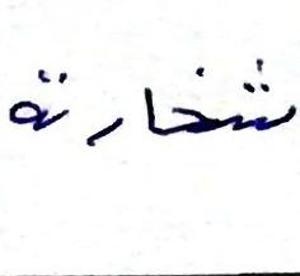 شخارة